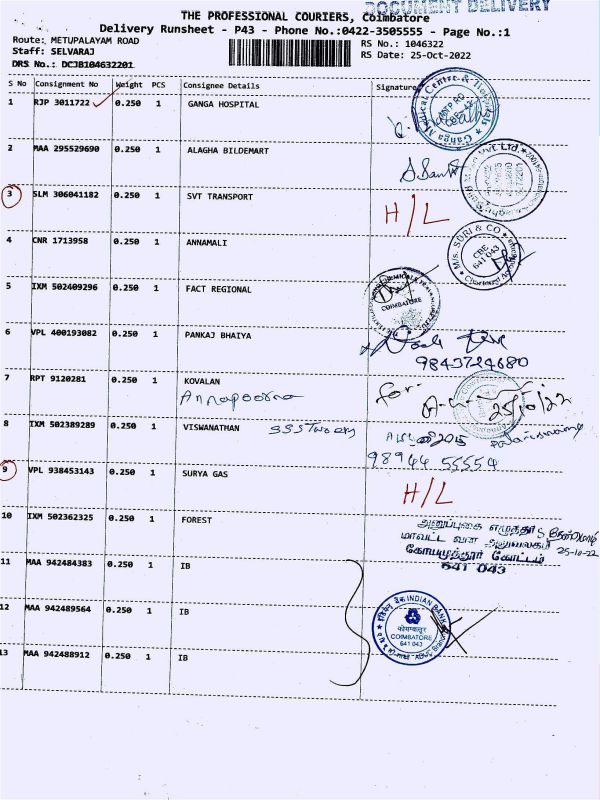 DOCUMENT DELIVERY
THE PROFESSIONAL COURIERS, Coimbatore
Delivery Runsheet - P43 - Phone No.:0422-3505555 - Page No.:1
Route: METUPALAYAM ROAD
RS No.: 1046322
Staff: SELVARAJ
RS Date: 25-Oct-2022
DRS No.: DCJB104632201
S No Consignment No Weight PCS Consignee Details Signature
1 RJP 3011722 0.250 1 GANGA HOSPITAL
Ganga Medical Centre & Hospitals
2 MAA 295529690 0.250 1 ALAGHA BILDEMART
Pvt. Ltd.
3 SLM 306041182 0.250 1 SVT TRANSPORT H/L
4 CNR 1713958 0.250 1 ANNAMALI
M/s. SURI & CO
CBE
641 043
5 IXM 502409296 0.250 1 FACT REGIONAL
COIMBATORE
6 VPL 400193082 0.250 1 PANKAJ BHAIYA
9843724680
7 RPT 9120281 0.250 1 KOVALAN
Annapoorna
for.
25/10/22
8 IXM 502389289 0.250 1 VISWANATHAN
98944 55554
9 VPL 938453143 0.250 1 SURYA GAS
H/L
10 IXM 502362325 0.250 1 FOREST
அனுப்புகை எழுத்தர்
மாவட்ட வன அலுவலகம் 25-10-22
கோயமுத்தூர் கோட்டம்
641 043
11 MAA 942484383 0.250 1 IB
12 MAA 942489564 0.250 1 IB
इंडियन बैंक INDIAN BANK
कोयम्बत्तूर
COIMBATORE
641 043
13 MAA 942488912 0.250 1 IB